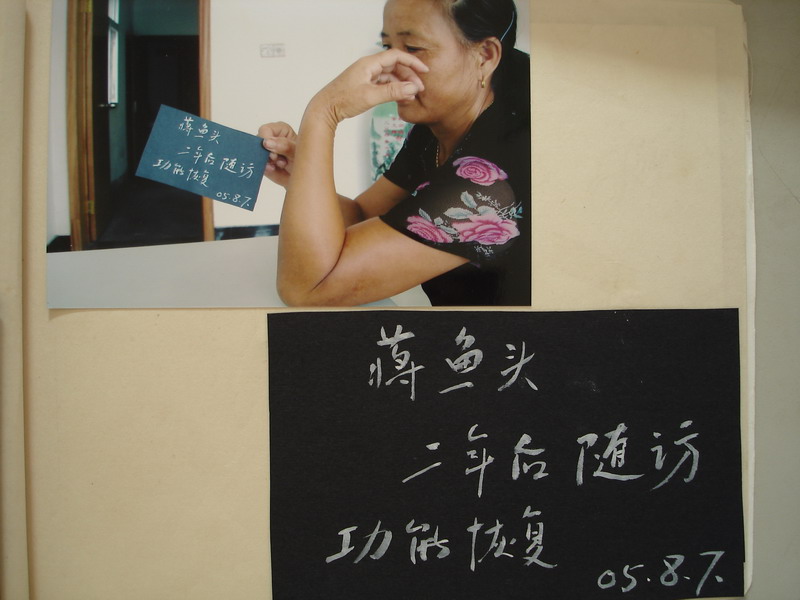 蒋鱼头
二年后随访
功能恢复
05.8.7.
蒋鱼头
二年后随访
功能恢复
05.8.7.